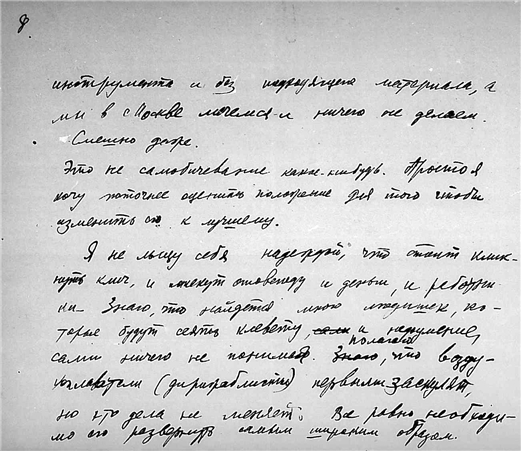 8
инструмента и без подходящего материала, а
мы в Москве мечемся и ничего не делаем.
Смешно даже.
Это не самобичевание какое-нибудь. Просто я
хочу точнее оценить положение для того чтобы
изменить его к лучшему.
Я не льщу себя надеждой, что стоит клик-
нуть клич, и отовсюду и деньги, и работни-
ки. Знаю, что найдется много людишек, ко-
торые будут сеять клевету, и
сами ничего не понимая. полагаю, что возду-
хоплаватели (дирижаблисты) первыми
но это дела не меняет. Все равно необходи-
мо его развернуть самым широким образом.